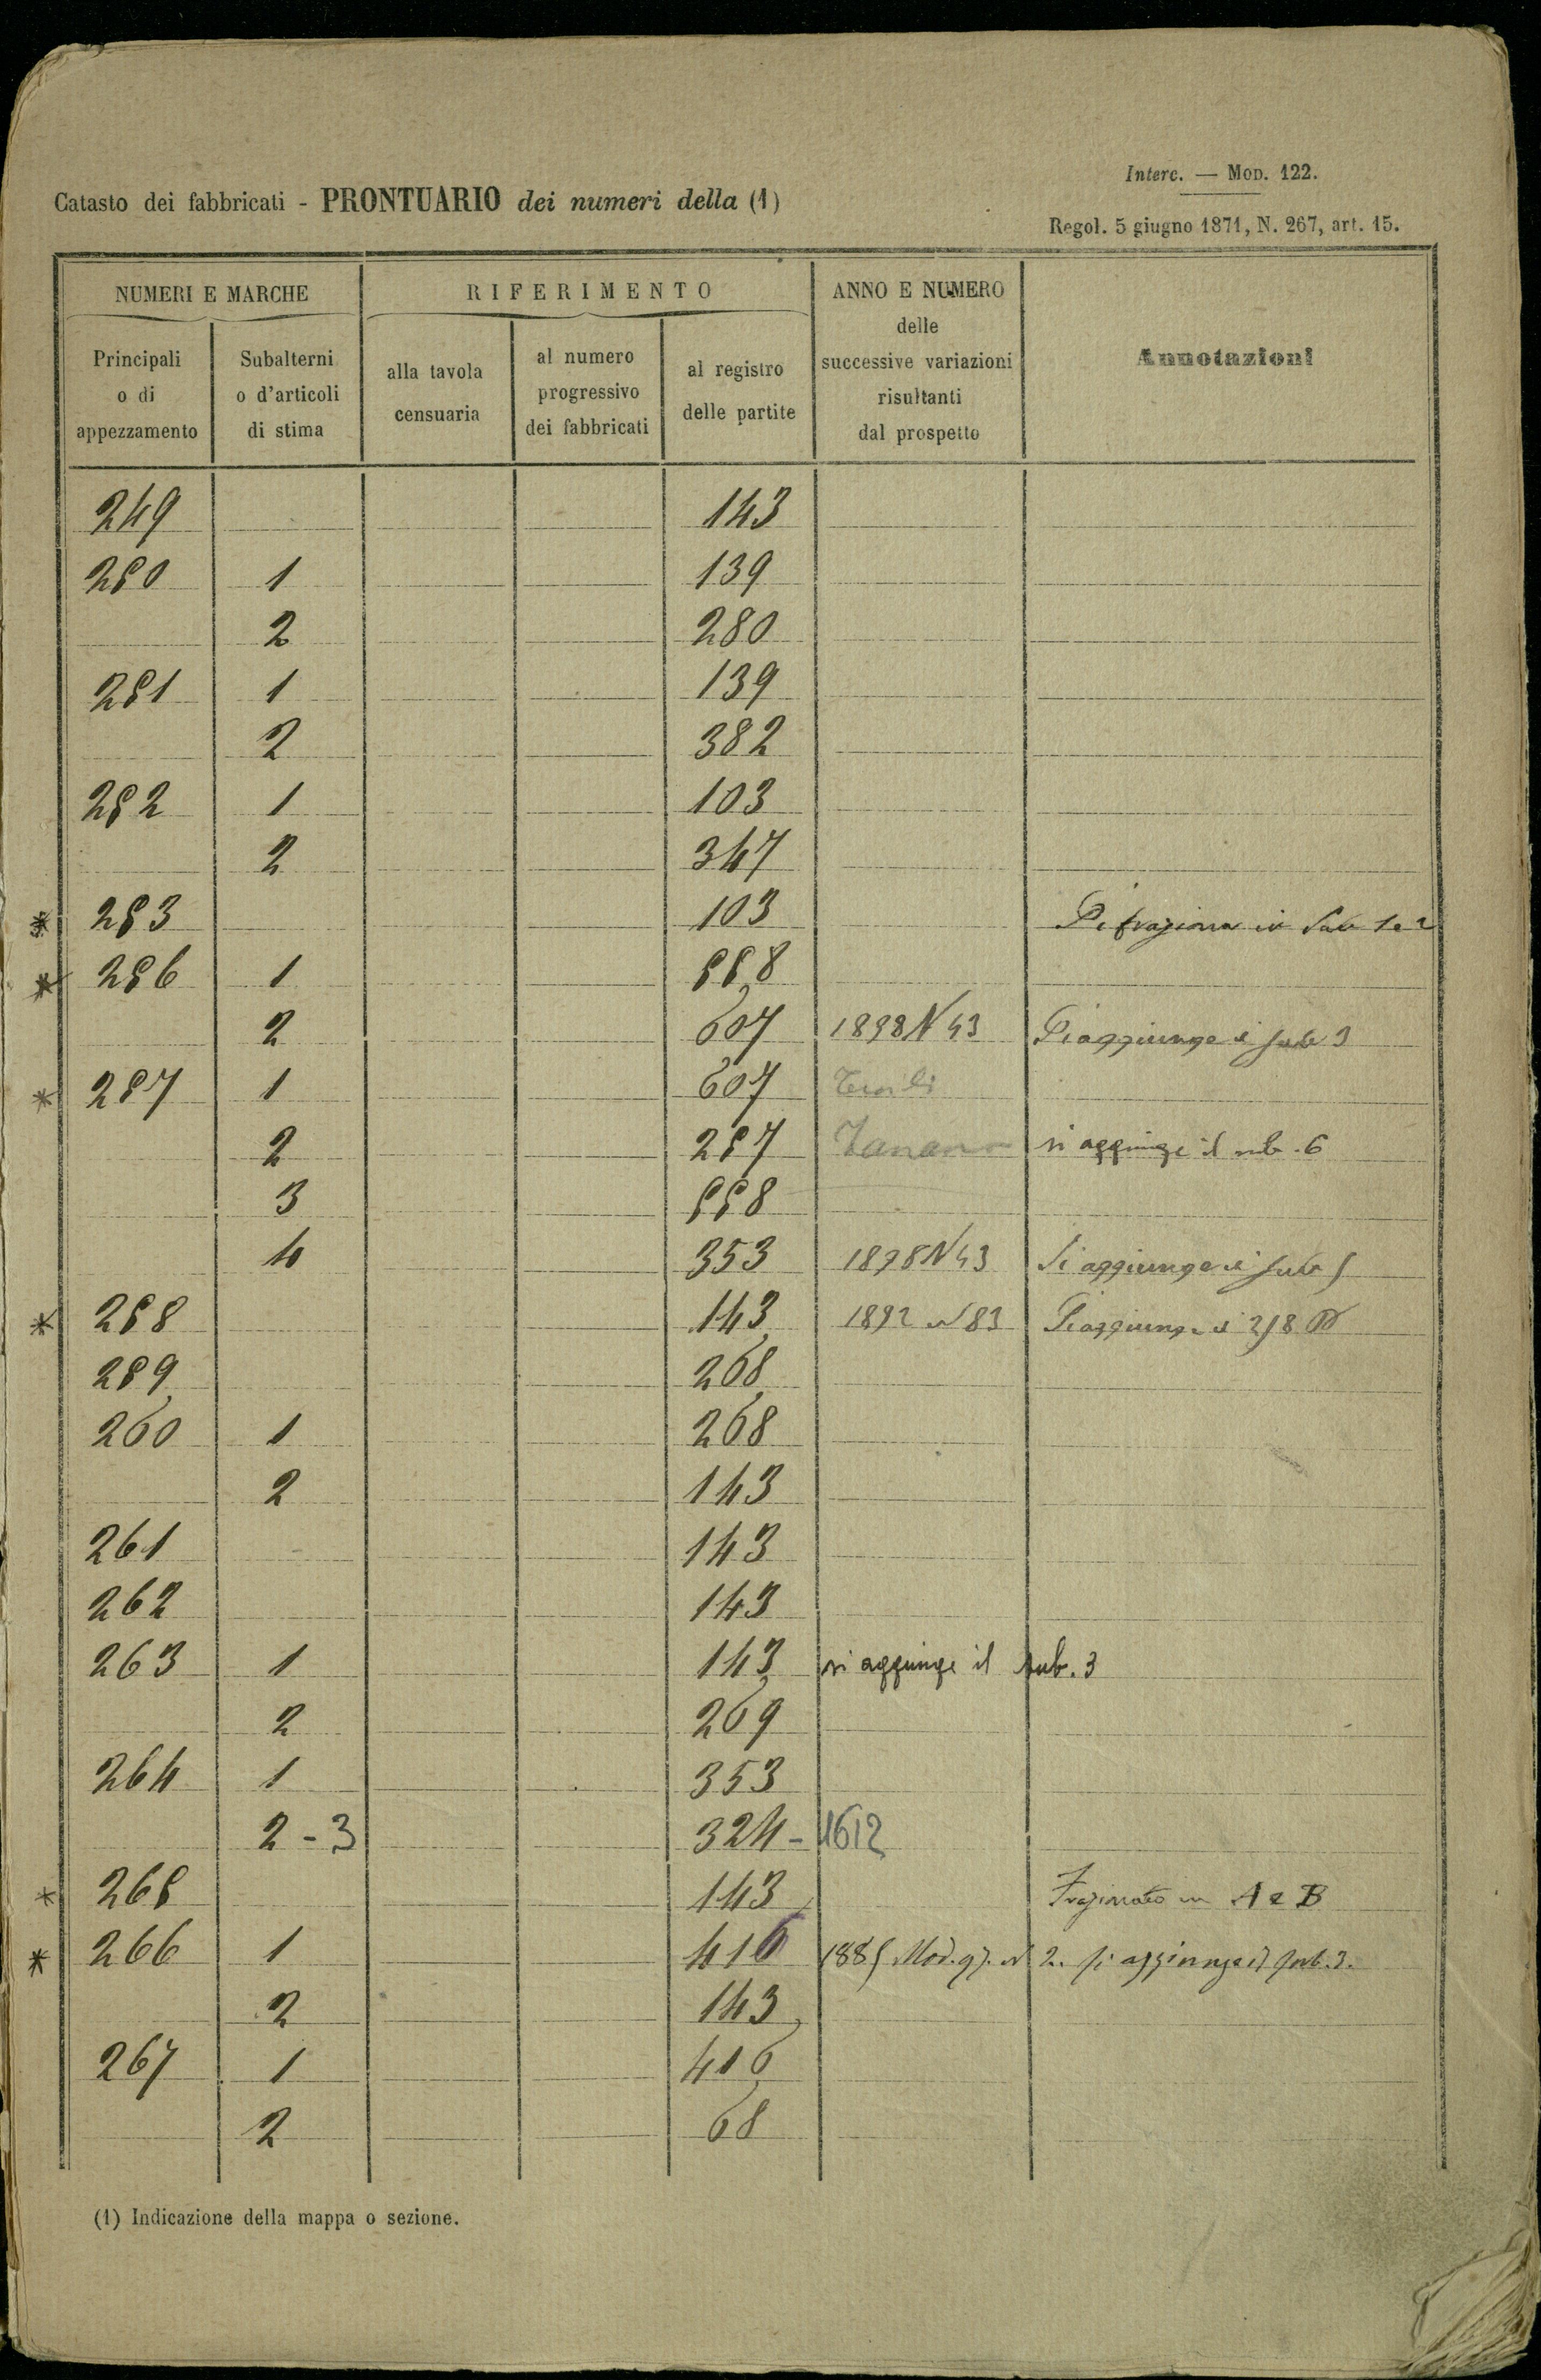 Interc. — Mod. 122.
Catasto dei fabbricati - PRONTUARIO dei numeri della (1)
Regol. 5 giugno 1871, N. 267, art. 15.
NUMERI E MARCHE RIFERIMENTO ANNO E NUMERO delle successive variazioni risultanti dal prospetto Annotazioni
Principali o di appezzamento Subalterni o d'articoli di stima alla tavola censuaria al numero progressivo dei fabbricati al registro delle partite
249 143
250 1 139
2 280
251 1 139
2 382
252 1 103
2 347
* 253 103 Si fraziona in Sub 1 e 2
* 256 1 558
2 607 1898 N 43 Si aggiunge il sub 3
* 257 1 607
2 257 si aggiunge il sub. 6
3 558
4 353 1898 N 43 Si aggiunge il sub 5
* 258 143 1892 N 83 Si aggiunge il 258
259 268
260 1 268
2 143
261 143
262 143
263 1 143 si aggiunge il sub. 3
2 269
264 1 353
2 - 3 324 - 1612
* 265 143 Frazionato in A e B
* 266 1 416 1885 Mod. 97. N 2. Si aggiunge il sub. 3.
2 143
267 1 416
2 68
(1) Indicazione della mappa o sezione.